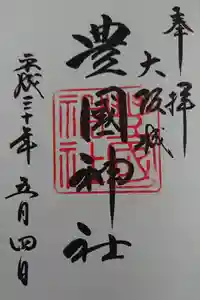 奉拝
大阪城
豊國神社
平成三十年五月四日